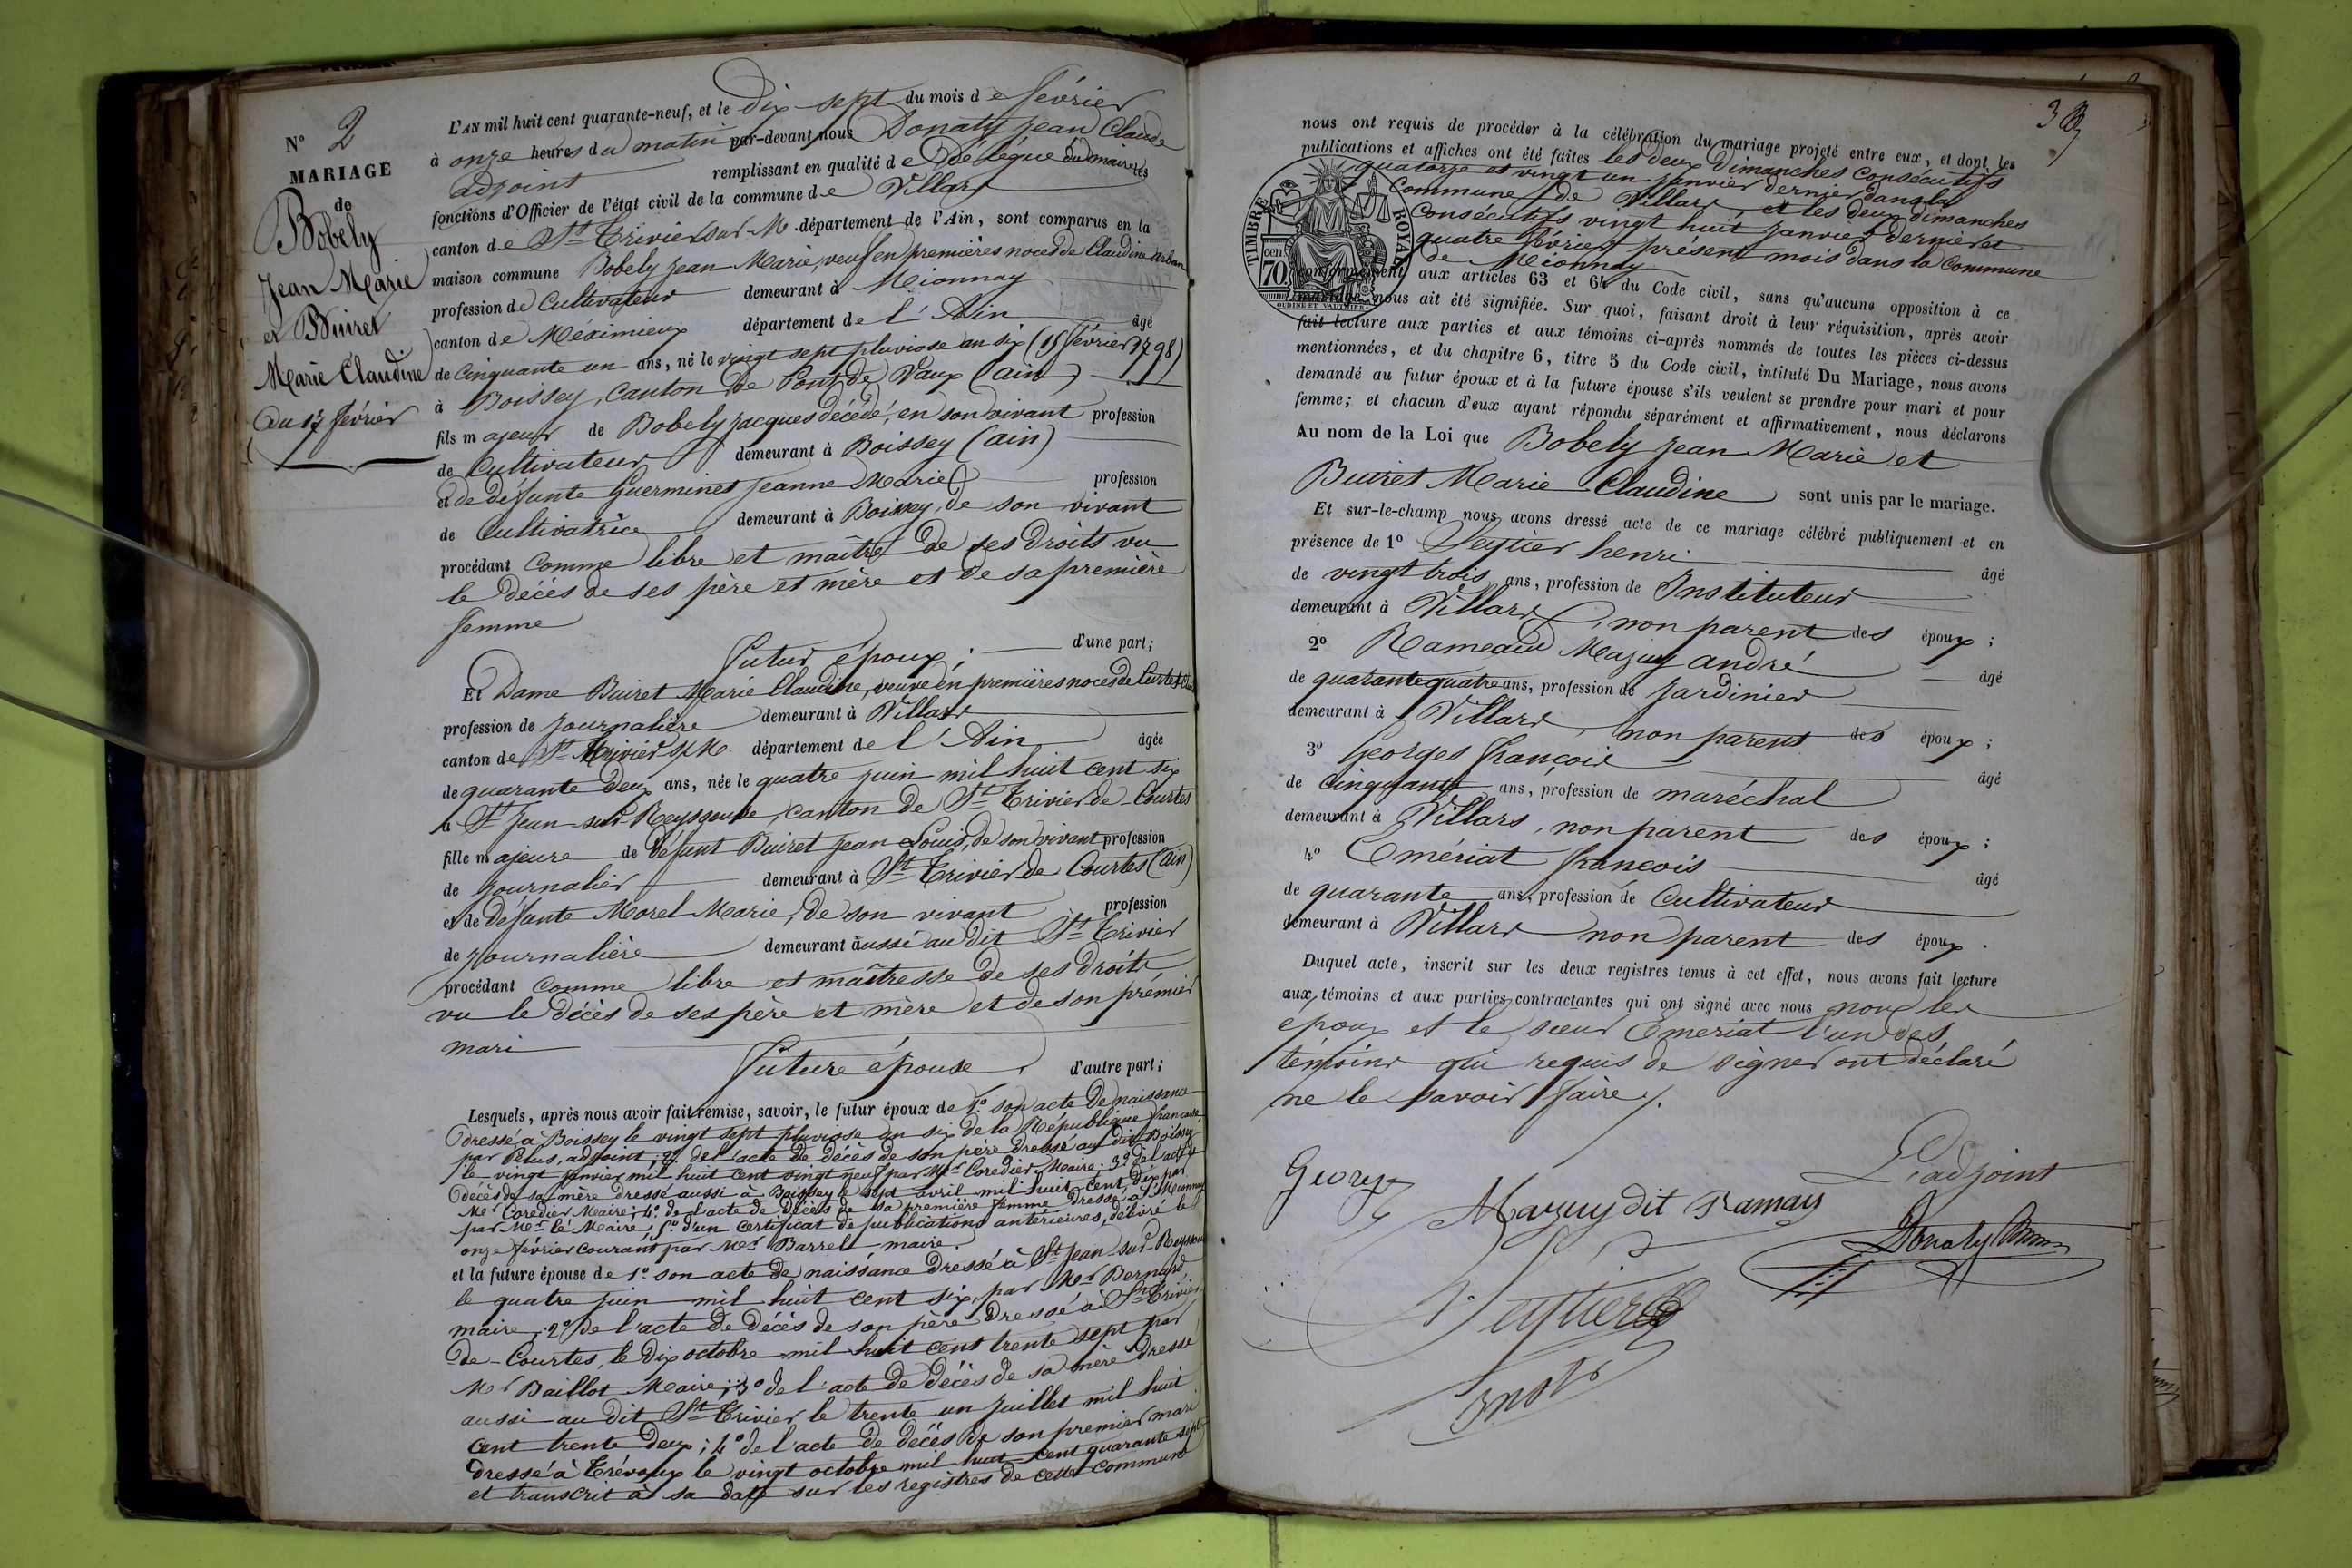 N° 2
MARIAGE
de
Bobely
Jean Marie
et Buiret
Marie Claudine
Du 17 février
L'AN mil huit cent quarante-neuf, et le dix sept du mois de février
à onze heures du matin par-devant nous Donaty Jean Claude
adjoint remplissant en qualité de délégué du maire les
fonctions d'Officier de l'état civil de la commune de Villars
canton de St Trivier sur M. département de l'Ain, sont comparus en la
maison commune Bobely Jean Marie, veuf en premières noces de Claudine Urban
profession de Cultivateur demeurant à Mionnay
canton de Méximieux département de l'Ain âgé
de Cinquante un ans, né le vingt sept pluviose an six (15 février 1798)
à Boissey, canton de Pont de Vaux (ain)
fils majeur de Bobely Jacques décédé, en son vivant profession
de Cultivateur demeurant à Boissey (ain)
et de défunte Guerminet Jeanne Marie profession
de Cultivatrice demeurant à Boissey, de son vivant
procédant comme libre et maître de ses droits vu
le décès de ses père et mère et de sa première
femme
futur époux; d'une part;
Et Dame Buiret Marie Claudine, veuve en premières noces de Curtet
profession de journalière demeurant à Villars
canton de St Trivier s/ M. département de l'Ain âgée
de quarante deux ans, née le quatre juin mil huit cent six
à St Jean-sur-Reyssouse, canton de St Trivier-de-Courtes
fille majeure de défunt Buiret Jean Louis, de son vivant profession
de journalier demeurant à St Trivier de Courtes (Ain)
et de défunte Morel Marie, de son vivant profession
de journalière demeurant aussi au dit St Trivier
procédant comme libre et maîtresse de ses droits
vu le décès de ses père et mère et de son premier
mari
future épouse, d'autre part;
Lesquels, après nous avoir fait remise, savoir, le futur époux de 1° son acte de naissance
dressé à Boissey le vingt sept pluviose an six de la République française
par Pelus, adjoint; 2° de l'acte de décès de son père dressé au dit Boissey
le vingt janvier mil huit cent vingt neuf par Mr Coredier Maire; 3° de l'acte de
décès de sa mère dressé aussi à Boissey le sept avril mil huit cent dix par
Mr Coredier Maire; 4° de l'acte de décès de sa première femme dressé à Mionnay
par Mr le Maire, 5° d'un certificat de publications antérieures, délivré le
onze février courant par Mr Barrel maire.
et la future épouse de 1° son acte de naissance dressé à St Jean-sur-Reyssouse
le quatre juin mil huit cent six, par Mr Bernard
maire; 2° de l'acte de décès de son père dressé à St Trivier
de-Courtes, le dix octobre mil huit cent trente sept par
Mr Baillot Maire; 3° de l'acte de décès de sa mère dressé
aussi au dit St Trivier le trente un juillet mil huit
cent trente deux; 4° de l'acte de décès de son premier mari
dressé à Trévoux le vingt octobre mil huit cent quarante sept
et transcrit à sa date sur les registres de cette commune
nous ont requis de procéder à la célébration du mariage projeté entre eux, et dont les
publications et affiches ont été faites les deux Dimanches Consécutifs
quatorze et vingt un janvier dernier dans la
Commune de Villars et les deux dimanches
Consécutifs vingt huit janvier dernier et
quatre février présent mois dans la Commune
de Mionnay
TIMBRE ROYAL
70 cen.
conformément aux articles 63 et 64 du Code civil, sans qu'aucune opposition à ce
mariage nous ait été signifiée. Sur quoi, faisant droit à leur réquisition, après avoir
fait lecture aux parties et aux témoins ci-après nommés de toutes les pièces ci-dessus
mentionnées, et du chapitre 6, titre 5 du Code civil, intitulé Du Mariage, nous avons
demandé au futur époux et à la future épouse s'ils veulent se prendre pour mari et pour
femme; et chacun d'eux ayant répondu séparément et affirmativement, nous déclarons
Au nom de la Loi que Bobely Jean Marie et
Buiret Marie Claudine sont unis par le mariage.
Et sur-le-champ nous avons dressé acte de ce mariage célébré publiquement et en
présence de 1° Seytier henri âgé
de vingt trois ans, profession de Instituteur
demeurant à Villars, non parent des époux;
2° Rameaud Mazuy andré âgé
de quarante quatre ans, profession de jardinier
demeurant à Villars non parent des époux;
3° Georges françois âgé
de cinquante ans, profession de maréchal
demeurant à Villars, non parent des époux;
4° Emériat françois âgé
de quarante ans, profession de Cultivateur
demeurant à Villars non parent des époux.
Duquel acte, inscrit sur les deux registres tenus à cet effet, nous avons fait lecture
aux témoins et aux parties contractantes qui ont signé avec nous non les
époux et le sieur Emeriat l'un des
témoins qui requis de signer ont déclaré
ne le savoir faire /.
George
Mazuy dit Ramau
L'adjoint
Donaty
Seytier
Instr